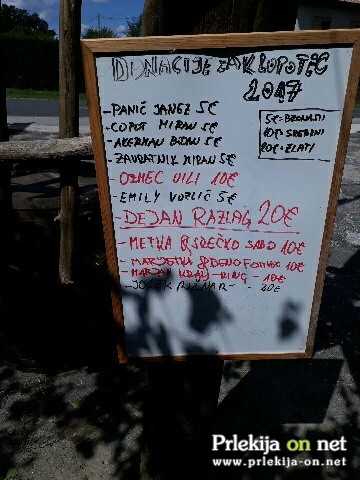 DONACIJE ZA KLOPOTEC
2017
5€-BRONASTI
10€-SREBRNI
20€-ZLATI
-PANIČ JANEZ 5€
-COPOT MIRAN 5€
-AKERMAN BOJAN 5€
-ZAVRATNIK MIRAN 5€
-OZMEC VILI 10€
-EMILY VOZLIČ 5€
-DEJAN RAZLAG 20€
-METKA & SREČKO SABO 10€
-MARJETKA & DENO 10€
-MARJAN KRALJ-RING - 10€
-JOŽEK RIŽNAR - 20€
Prlekija on net
www.prlekija-on.net